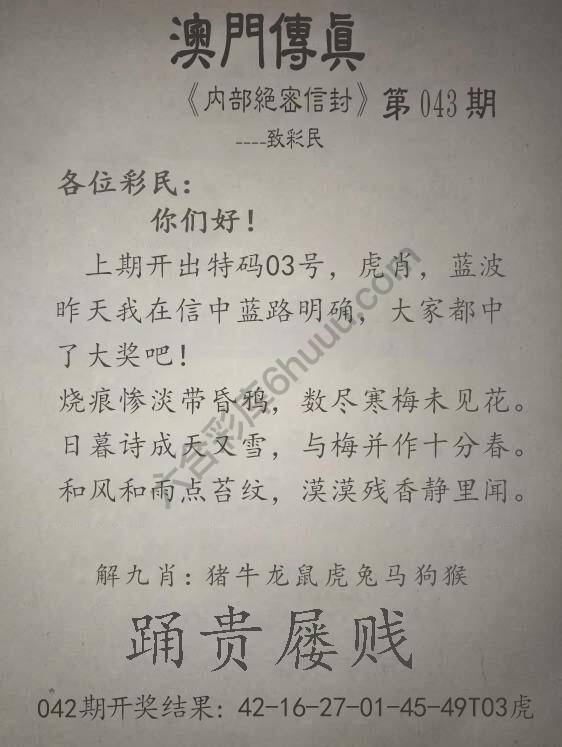 澳門傳眞
《内部絕密信封》第 043 期
----致彩民
各位彩民：
你们好！
上期开出特码03号，虎肖，蓝波
昨天我在信中蓝路明确，大家都中
了大奖吧！
烧痕惨淡带昏鸦，数尽寒梅未见花。
日暮诗成天又雪，与梅并作十分春。
和风和雨点苔纹，漠漠残香静里闻。
六合彩库6huuu.com
解九肖：猪牛龙鼠虎兔马狗猴
踊贵屦贱
042期开奖结果：42-16-27-01-45-49T03虎